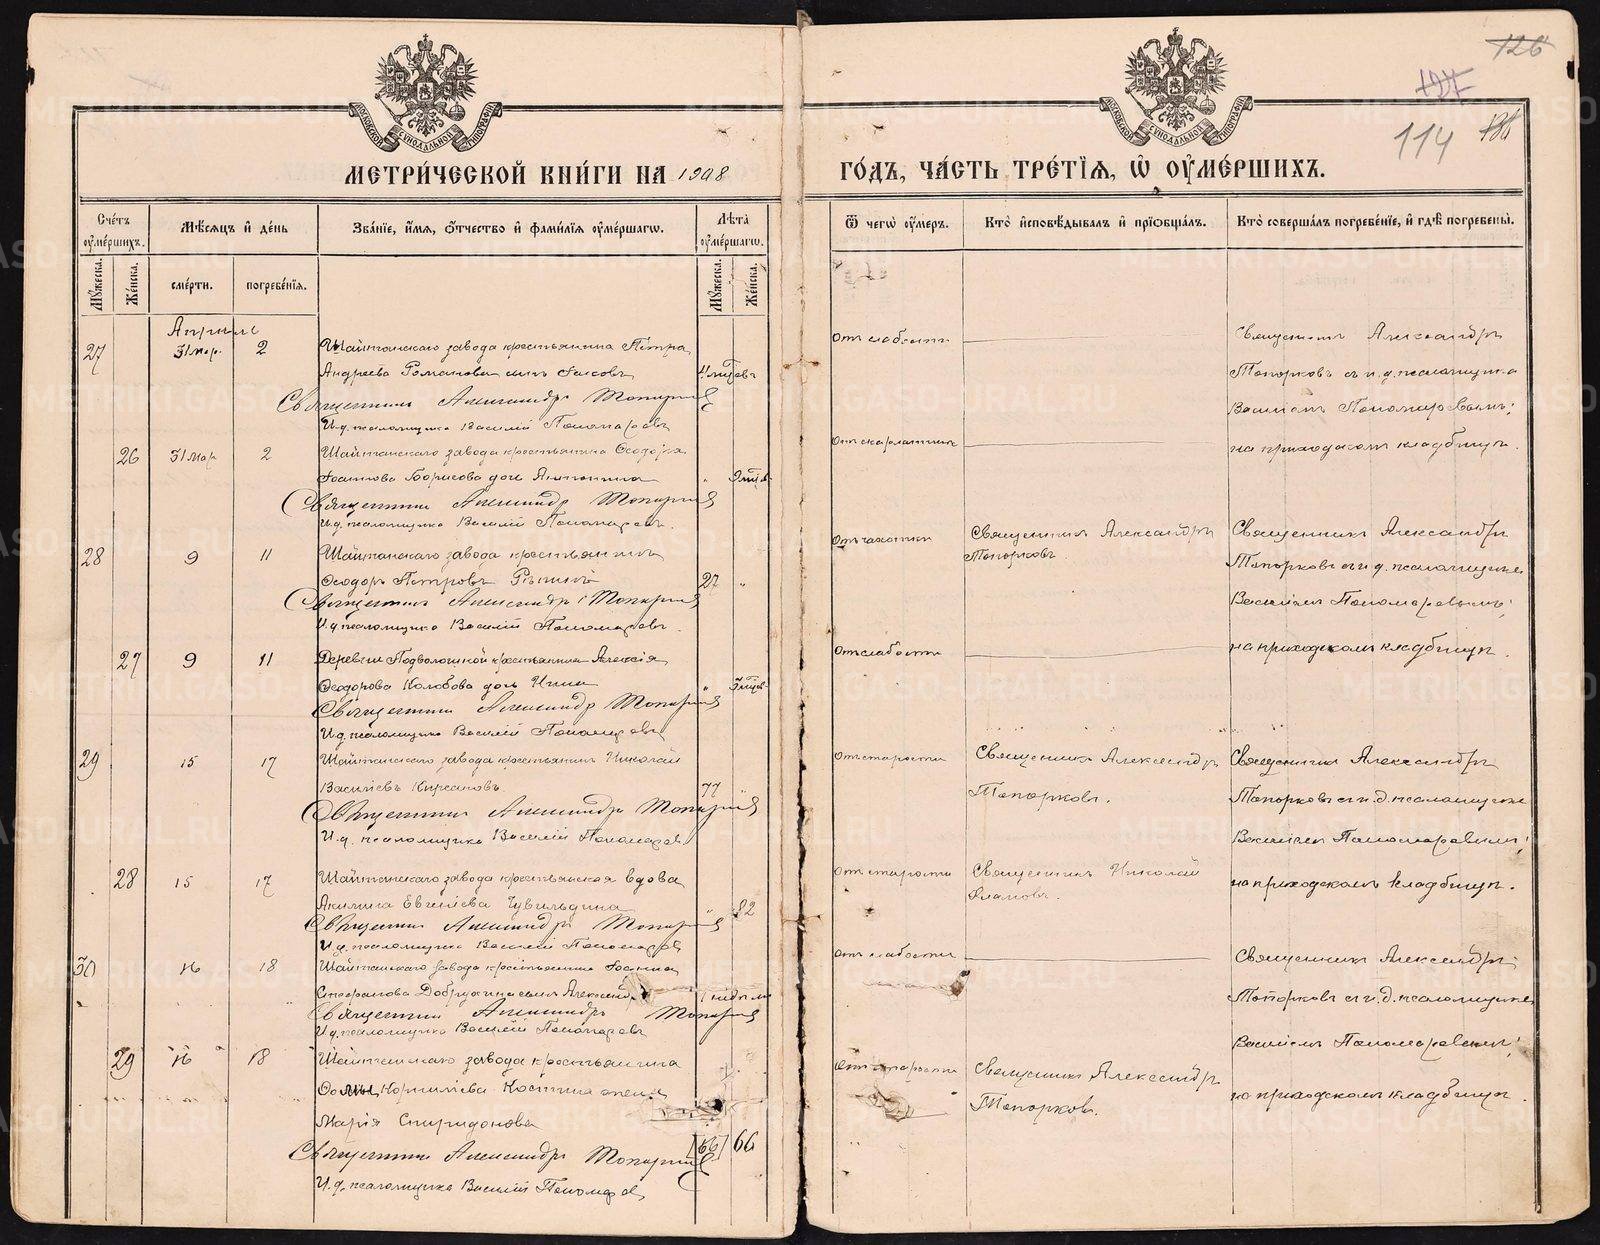 126
127
114
МЕТРИ́ЧЕСКОЙ КНИ́ГИ НА 1908
ГО́ДЪ, ЧА́СТЬ ТРЕ́ТІЯ, Ѿ ОУ҆МЕ́РШИХЪ.
Сче́тъ оу҆ме́ршихъ.
Мѣ́сяцъ и҆ де́нь
Зва́нїе, и҆́мя, ѻ҆́тчество и҆ фами́лїя оу҆ме́ршагѡ.
Лѣ́та оу҆ме́ршагѡ.
Ѿ чегѡ̀ оу҆́меръ.
Кто̀ и҆сповѣ́дывалъ и҆ прїѻбща́лъ.
Кто̀ соверша́лъ погребе́нїе, и҆ гдѣ̀ погребены̀.
Му́жеска.
Же́нска.
сме́рти.
погребе́нїя.
Му́жеска.
Же́нска.
Апрель
27 31 мар. 2 Шайтанскаго завода крестьянина Петра
Андреева Романова сынъ
Священникъ Александръ Топорковъ
И.д. псаломщика Василій Пономаревъ
Отъ слабости
Священникъ Александръ
Топорковъ съ и.д. псаломщика
Василіемъ Пономаревымъ;
на приходскомъ кладбищѣ.
26 31 мар 2 Шайтанскаго завода крестьянина Ѳеодора
Борисова дочь Антонина
Священникъ Александръ Топорковъ
И.д. псаломщика Василій Пономаревъ.
Отъ скарлатины
28 9 11 Шайтанскаго завода крестьянинъ
Ѳеодоръ Петровъ 27 "
Священникъ Александръ Топорковъ
И.д. псаломщика Василій Пономаревъ.
Отъ чахотки
Священникъ Александръ
Топорковъ.
Священникъ Александръ
Топорковъ съ и.д. псаломщика
Василіемъ Пономаревымъ;
на приходскомъ кладбищѣ.
27 9 11 Деревни Подволошной крестьянина Алексія
Ѳеодорова Колобова дочь Нина
Священникъ Александръ Топорковъ
И.д. псаломщика Василій Пономаревъ
Отъ слабости
29 15 17 Шайтанскаго завода крестьянинъ Николай
Васильевъ Кирсановъ. 77 "
Священникъ Александръ Топорковъ
И.д. псаломщика Василій Пономаревъ
Отъ старости
Священникъ Александръ
Топорковъ.
Священникъ Александръ
Топорковъ съ и.д. псаломщика
Василіемъ Пономаревымъ;
на приходскомъ кладбищѣ.
28 15 17 Шайтанскаго завода крестьянская вдова
Акилина Евгеніева Чувильдина " 82
Священникъ Александръ Топорковъ
И.д. псаломщика Василій Пономаревъ
Отъ старости
Священникъ Николай
30 16 18 Шайтанскаго завода крестьянина Іоанна
Стефанова Добрынина сынъ Александръ
Священникъ Александръ Топорковъ
И.д. псаломщика Василій Пономаревъ
Отъ слабости
Священникъ Александръ
Топорковъ съ и.д. псаломщика
Василіемъ Пономаревымъ;
на приходскомъ кладбищѣ.
29 16 18 Шайтанскаго завода крестьянина
Ѳомы Корниліева Костина жена
Марія Спиридонова
[66] 66
Священникъ Александръ Топорковъ
И.д. псаломщика Василій Пономаревъ
Отъ старости
Священникъ Александръ
Топорковъ.
METRIKI.GASO-URAL.RU